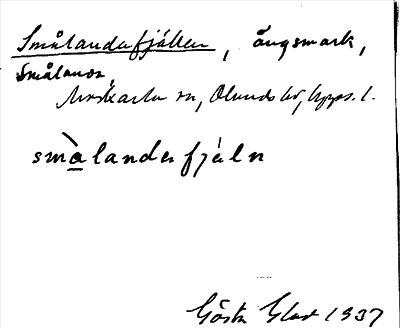 Smålandsfjällen, ängsmark,
Småland,
Morkarla sn, Olands hd, Upps. l.
smàlandasfjäln
Gösta Glad 1937